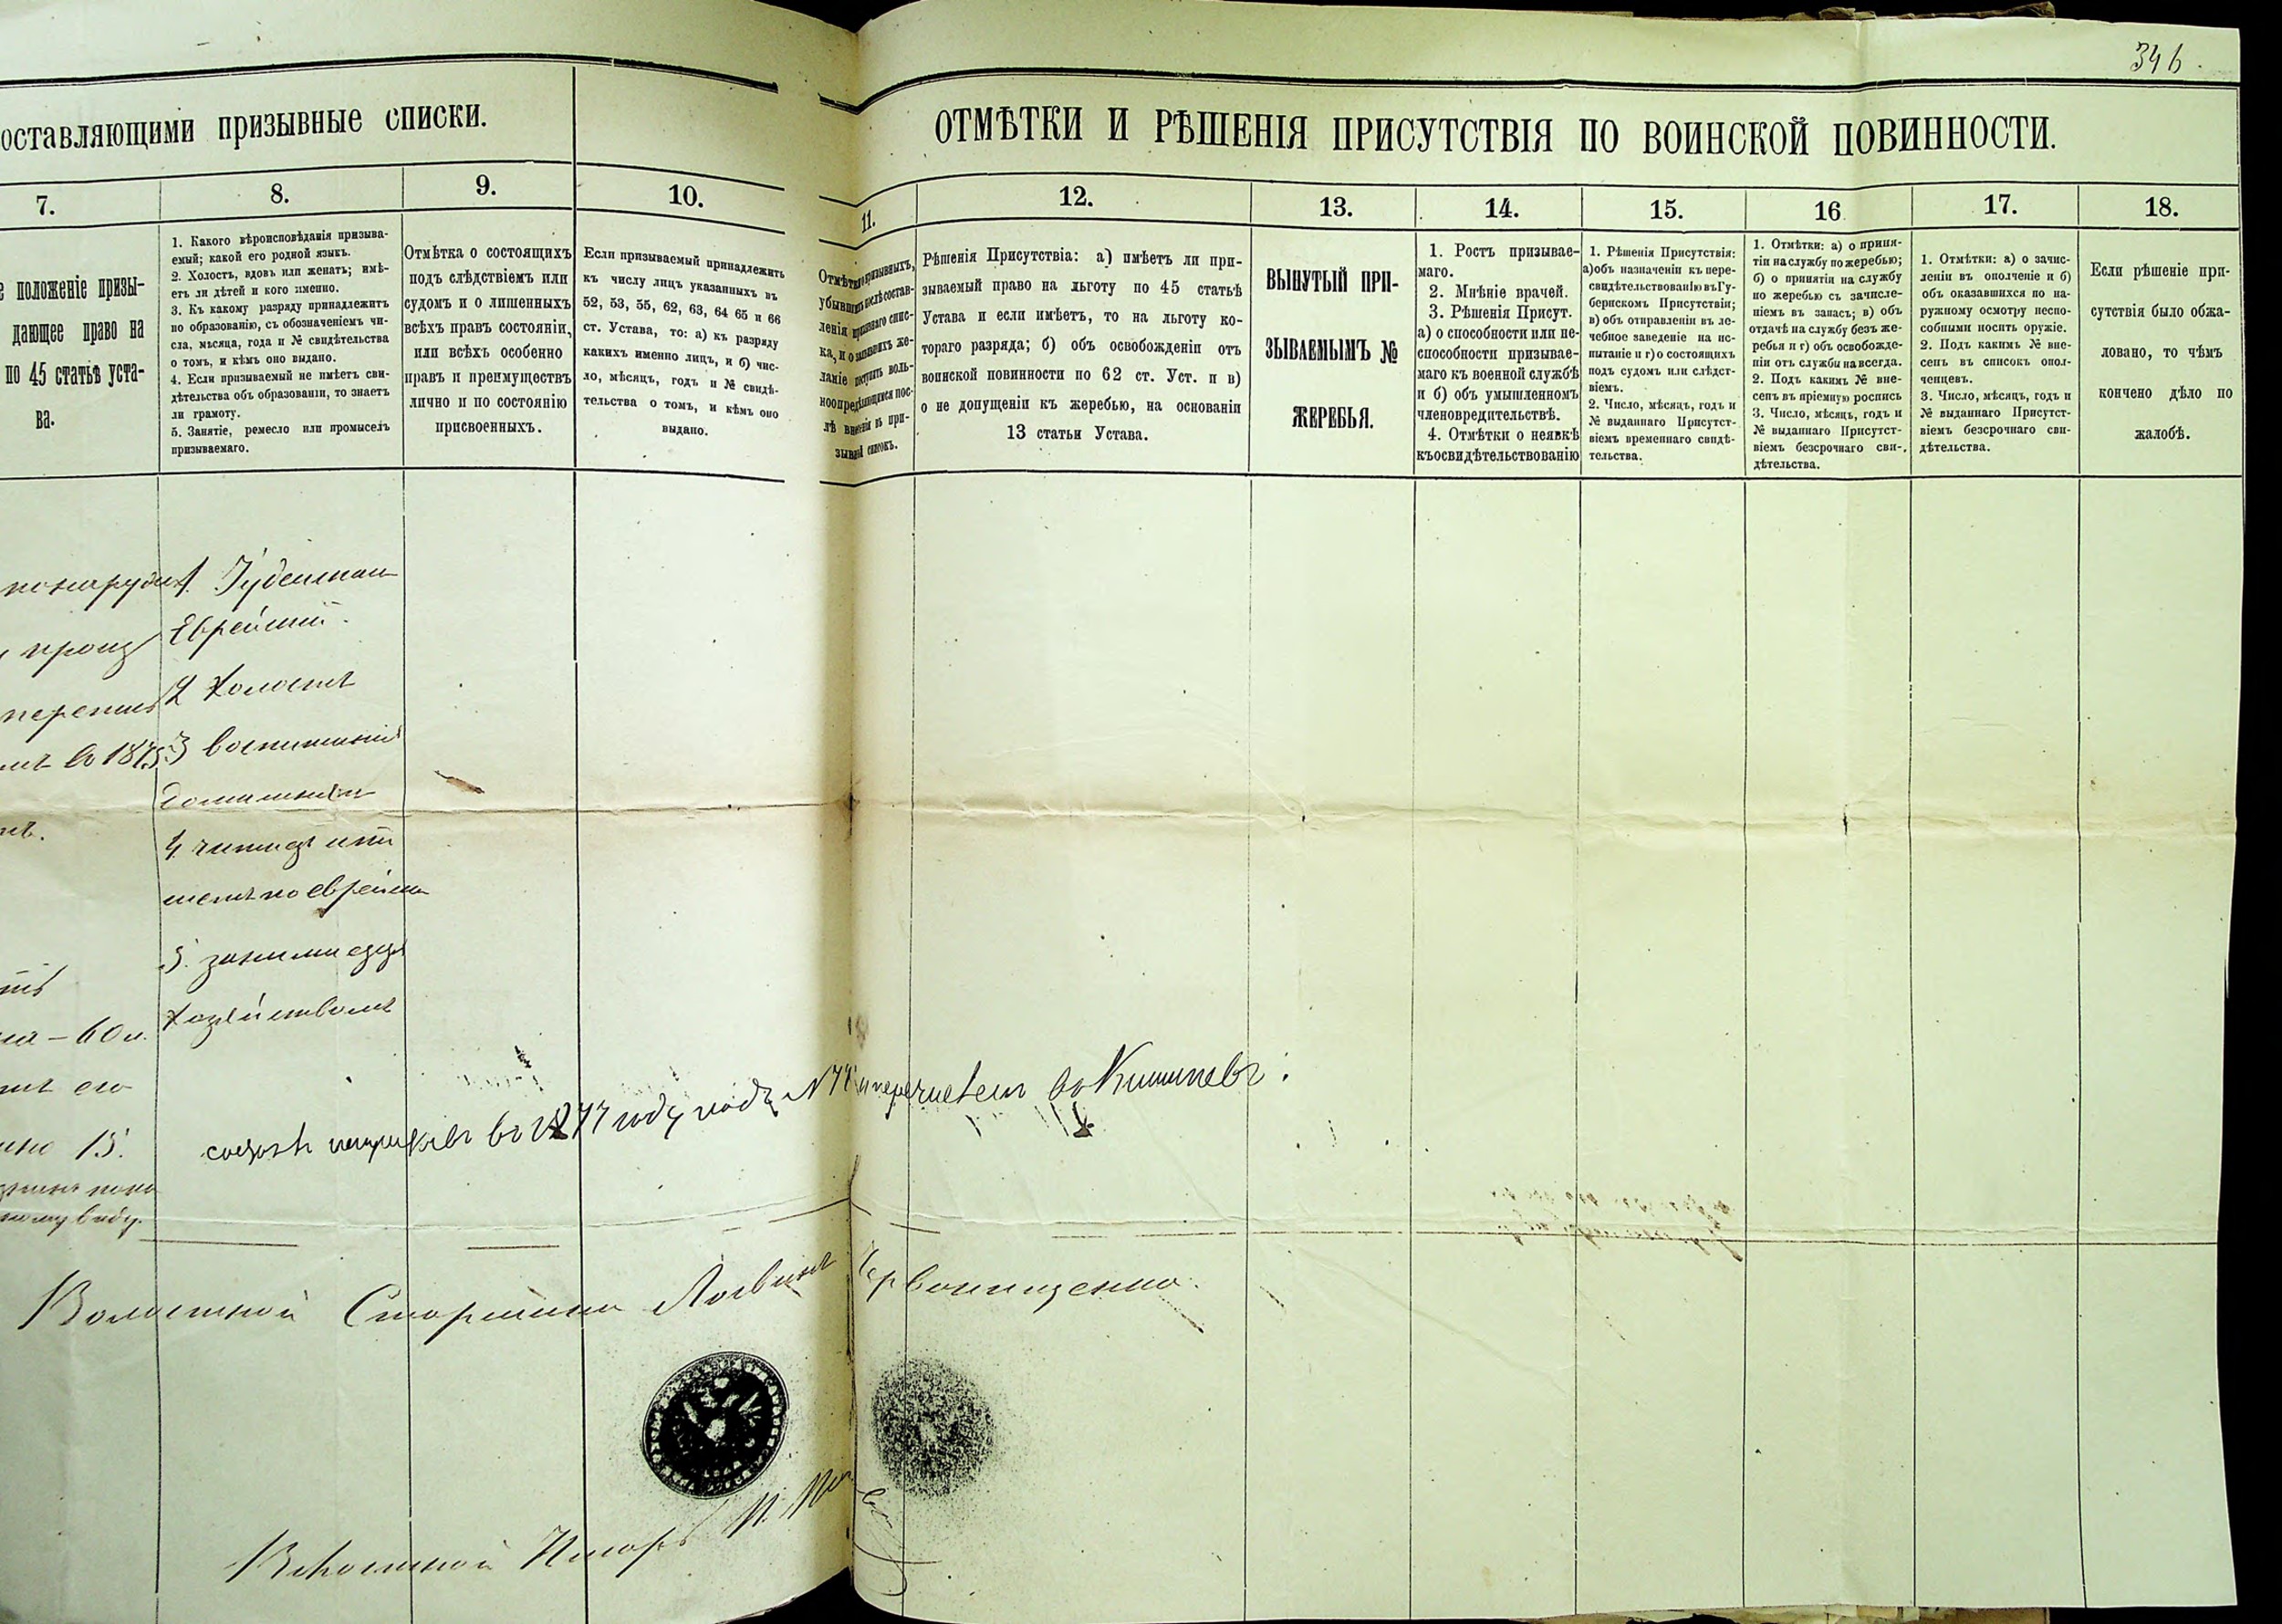 346.
оставляющими призывные списки.
ОТМѢТКИ И РѢШЕНІЯ ПРИСУТСТВІЯ ПО ВОИНСКОЙ ПОВИННОСТИ.
7.
8.
9.
10.
11.
12.
13.
14.
15.
16
17.
18.
положеніе призы-
дающее право на
по 45 статьѣ уста-
ва.
1. Какого вѣроисповѣданія призыва-
емый; какой его родной языкъ.
2. Холостъ, вдовъ или женатъ; имѣ-
етъ ли дѣтей и кого именно.
3. Къ какому разряду принадлежитъ
по образованію, съ обозначеніемъ чи-
сла, мѣсяца, года и № свидѣтельства
о томъ, и кѣмъ оно выдано.
4. Если призываемый не имѣетъ сви-
дѣтельства объ образованіи, то знаетъ
ли грамоту.
5. Занятіе, ремесло или промыселъ
призываемаго.
Отмѣтка о состоящихъ
подъ слѣдствіемъ или
судомъ и о лишенныхъ
всѣхъ правъ состоянія,
или всѣхъ особенно
правъ и преимуществъ
лично и по состоянію
присвоенныхъ.
Если призываемый принадлежитъ
къ числу лицъ указанныхъ въ
52, 53, 55, 62, 63, 64 65 и 66
ст. Устава, то: а) къ разряду
какихъ именно лицъ, и б) чис-
ло, мѣсяцъ, годъ и № свидѣ-
тельства о томъ, и кѣмъ оно
выдано.
Отмѣтки о призывныхъ,
убывшихъ послѣ состав-
ленія призывнаго спис-
ка, и о заявившихъ же-
ланіе поступить воль-
ноопредѣляющимся пос-
лѣ внесенія въ при-
зывной списокъ.
Рѣшенія Присутствія: а) имѣетъ ли при-
зываемый право на льготу по 45 статьѣ
Устава и если имѣетъ, то на льготу ко-
тораго разряда; б) объ освобожденіи отъ
воинской повинности по 62 ст. Уст. и в)
о не допущеніи къ жеребью, на основаніи
13 статьи Устава.
ВЫНУТЫЙ ПРИ-
ЗЫВАЕМЫМЪ №
ЖЕРЕБЬЯ.
1. Ростъ призывае-
маго.
2. Мнѣніе врачей.
3. Рѣшенія Присут.
а) о способности или не-
способности призывае-
маго къ военной службѣ
и б) объ умышленномъ
членовредительствѣ.
4. Отмѣтки о неявкѣ
къ освидѣтельствованію
1. Рѣшенія Присутствія:
а) объ назначеніи къ пере-
свидѣтельствованію въ Гу-
бернскомъ Присутствіи;
в) объ отправленіи въ ле-
чебное заведеніе на ис-
пытаніе и г) о состоящихъ
подъ судомъ или слѣдст-
віемъ.
2. Число, мѣсяцъ, годъ и
№ выданнаго Присутст-
віемъ временнаго свидѣ-
тельства.
1. Отмѣтки: а) о приня-
тіи на службу по жеребью;
б) о принятіи на службу
по жеребью съ зачисле-
ніемъ въ запасъ; в) объ
отдачѣ на службу безъ же-
ребья и г) объ освобожде-
ніи отъ службы на всегда.
2. Подъ какимъ № вне-
сенъ въ пріемную роспись
3. Число, мѣсяцъ, годъ и
№ выданнаго Присутст-
віемъ безсрочнаго сви-
дѣтельства.
1. Отмѣтки: а) о зачис-
леніи въ ополченіе и б)
объ оказавшихся по на-
ружному осмотру неспо-
собными носить оружіе.
2. Подъ какимъ № вне-
сенъ въ списокъ опол-
ченцевъ.
3. Число, мѣсяцъ, годъ и
№ выданнаго Присутст-
віемъ безсрочнаго сви-
дѣтельства.
Если рѣшеніе при-
сутствія было обжа-
ловано, то чѣмъ
кончено дѣло по
жалобѣ.
по наруж
1. Іудейскаго
Еврейскій.
2 Холостъ
3 воспитанія
домашняго
4. читаетъ и пи
шетъ по еврейски
5. занимается
хозяйствомъ
во 1875
60 л.
его
15.
виду.
въ 1877 году подъ № и перечисленъ въ Кишиневъ
Волостной Старшина Логвинъ Червонищенко.
Волостной Писарь